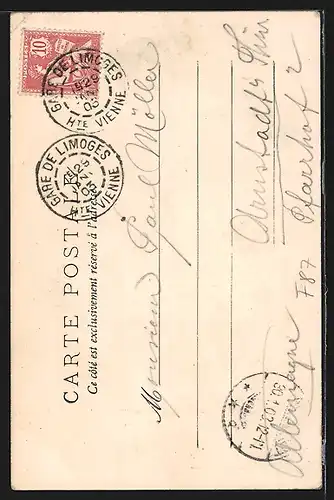 10
GARE DE LIMOGES
HTE VIENNE
GARE DE LIMOGES
HTE VIENNE
CARTE POSTA
Ce côté est exclusivement réservé à l'adresse
Monsieur Paul Möller
Arnstadt i/Thür
Pfarrhof 2
F87
Allemagne